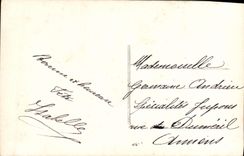 Bonne et heureuse
Fête
Isabelle
Mademoiselle
Germaine Andrieu
Spécialités Jupons
rue du Duméril
à Amiens